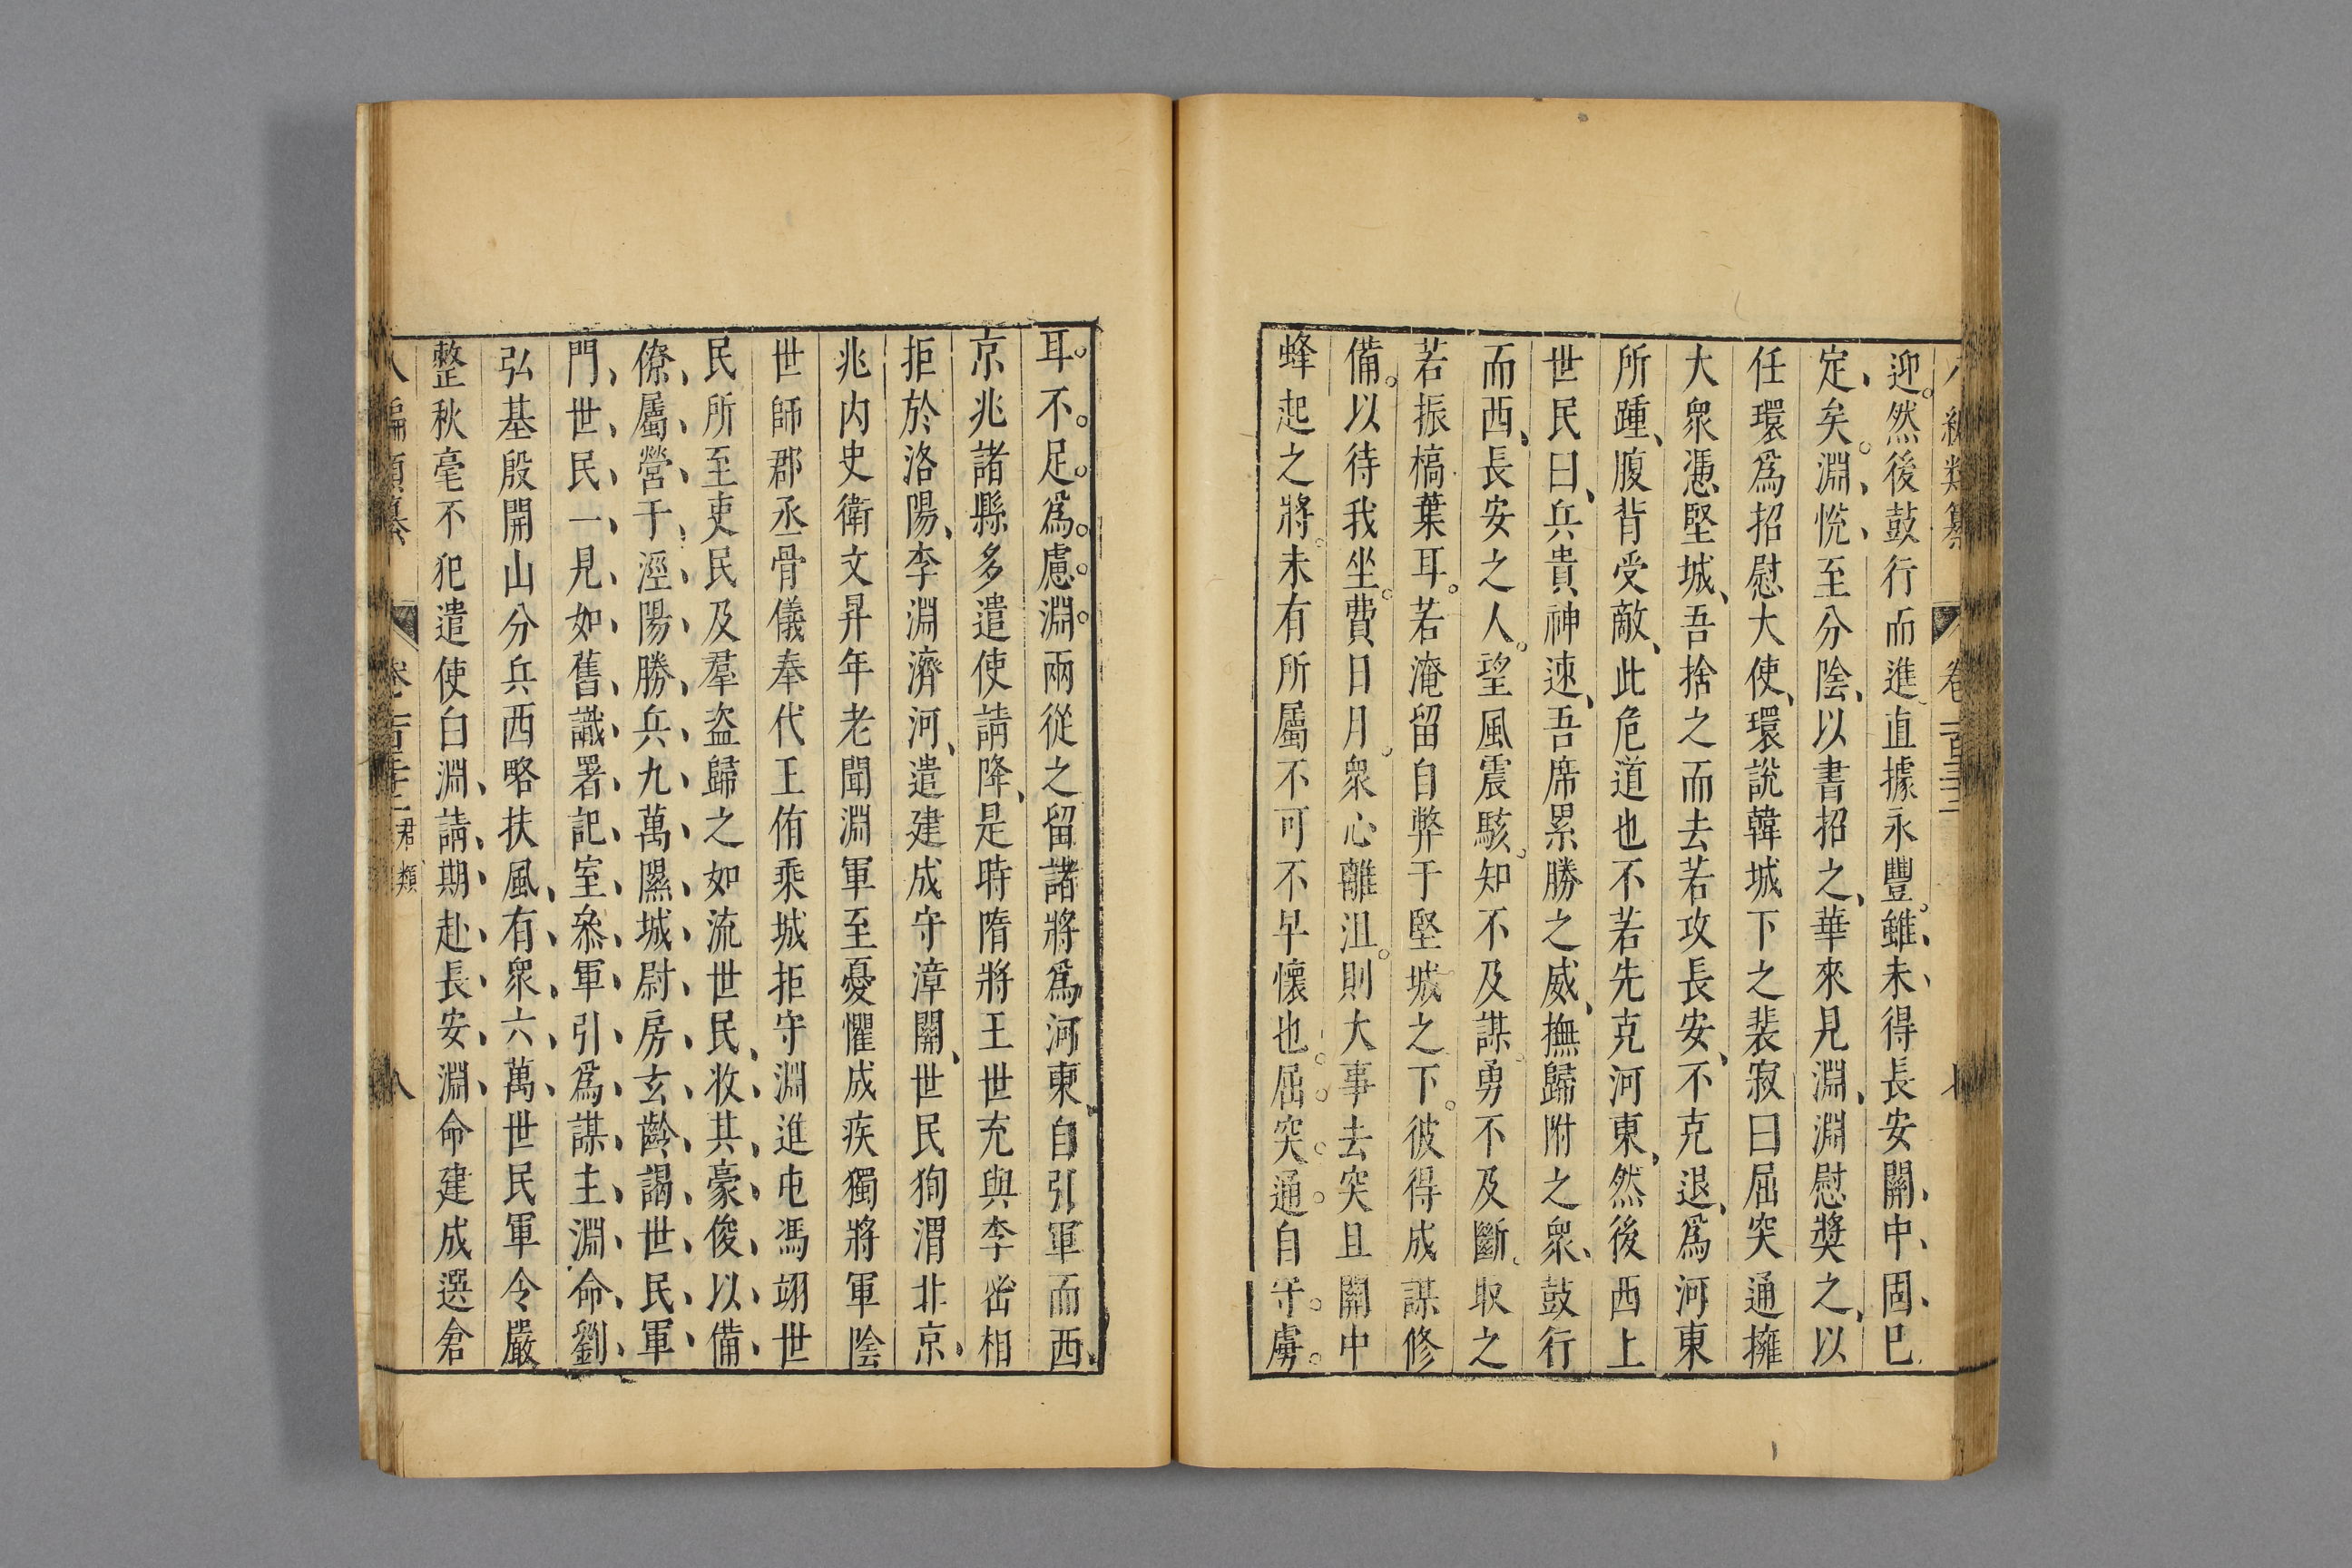 迎然後鼓行而進直據永豐雖未得長安關中固巳
定矣淵恱至分隂以書招之華來見淵淵慰奬之以
任環爲招慰大使環說韓城下之裴寂曰屈突通擁
大衆憑堅城吾捨之而去若攻長安不克退爲河東
所踵腹背受敵此危道也不若先克河東然後西上
世民曰兵貴神速吾席累勝之威撫歸附之衆鼓行
而西長安之人望風震駭知不及謀勇不及斷取之
若振槁葉耳若淹留自弊于堅城之下彼得成謀修
備以待我坐費日月衆心離沮則大事去矣且關中
蜂起之將未有所屬不可不早懷也屈突通自守虜
耳不足爲慮淵兩從之留諸將爲河東自引軍而西
京兆諸縣多遣使請降是時隋將王世充與李密相
拒於洛陽李淵濟河遣建成守漳關世民狥渭北京
兆内史衛文昇年老聞淵軍至憂懼成疾獨將軍隂
世師郡丞骨儀奉代王侑乘城拒守淵進屯馮翊世
民所至吏民及羣盗歸之如流世民收其豪俊以備
僚屬營于涇陽勝兵九萬隰城尉房玄齡謁世民軍
門世民一見如舊識署記室叅軍引爲謀主淵命劉
弘基殷開山分兵西略扶風有衆六萬世民軍令嚴
整秋毫不犯遣使白淵請期赴長安淵命建成選倉